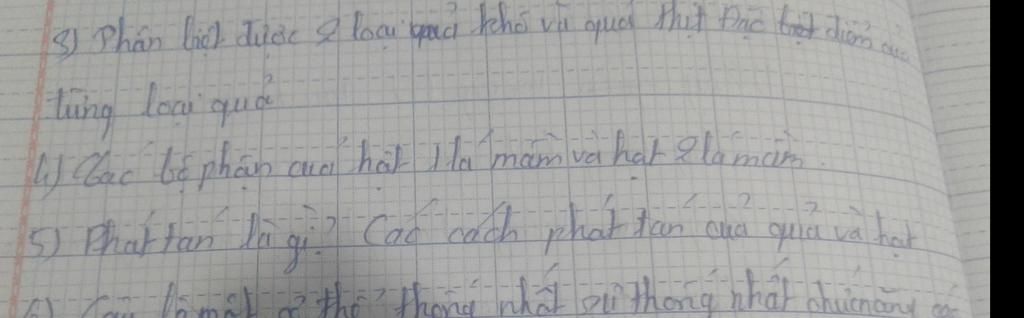 3) Phân biệt được 2 loại quả khô và quả thịt Đặc điểm của
từng loại quả
4) Các bộ phận của hạt 1 lá mầm và hạt 2 lá mầm.
5) Phát tán là gì? Các cách phát tán của quả và hạt
6) Cây là một cơ thể thống nhất sự thống nhất chức năng các